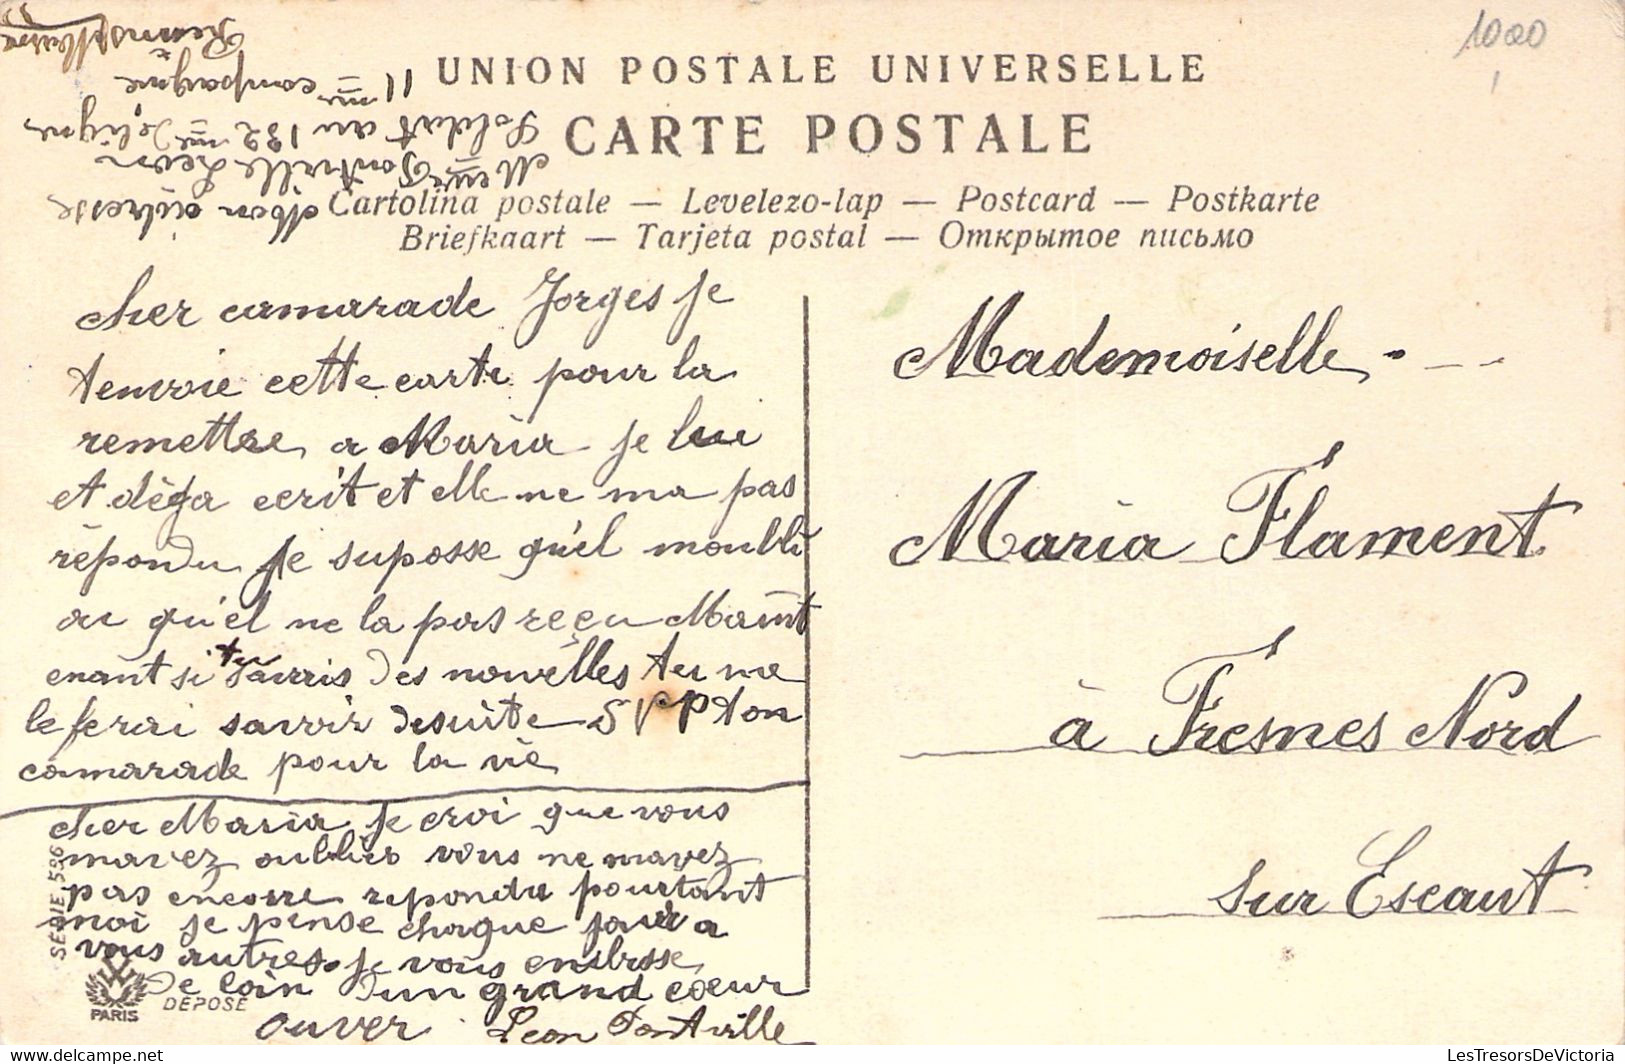 1000
UNION POSTALE UNIVERSELLE
CARTE POSTALE
Cartolina postale — Levelezo-lap — Postcard — Postkarte
Briefkaart — Tarjeta postal — Открытое письмо
Mon adresse
Mr Pontville Leon
Soldat au 132 me de ligne
11 me compagnie
Reims Marne
cher camarade Jorges je
tenvoie cette carte pour la
remettre a Maria je lui
et dèga ecrit et elle ne ma pas
rèpondu je suposse qu'el moubli
ou qu'el ne la pas reçu Maint
enant si tu aurris des nouvelles tu me
le ferai savoir desuite SVP ton
camarade pour la vie
cher Maria je croi que vous
mavez oublier vous ne mavez
pas encorre repondu pourtant
moi je pense chaque jour a
vous autres. je vous enbrsse
De loin d'un grand coeur
ouver Leon Pontville
Mademoiselle
Maria Flament
à Fresnes Nord
sur Escaut
SÉRIE 596
PARIS
DÉPOSÉ
LesTresorsDeVictoria